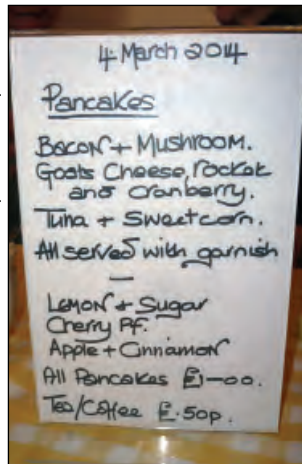 4 March 2014
Pancakes
Bacon + Mushroom.
Goats Cheese, rocket
and Cranberry.
Tuna + Sweetcorn.
All served with garnish
—
Lemon + Sugar
Cherry P.f.
Apple + Cinnamon
All Pancakes £1-00.
Tea/Coffee £.50p.